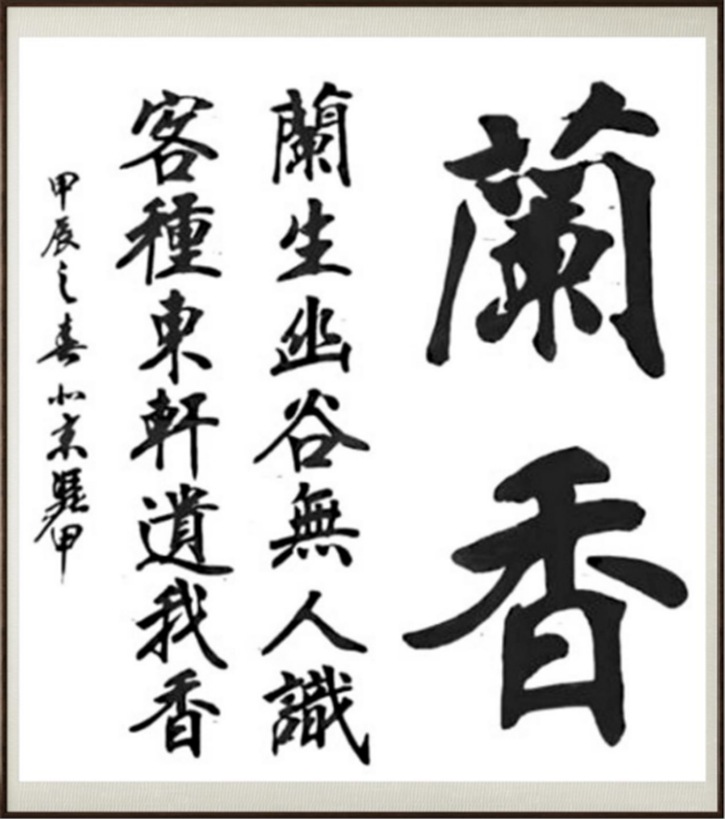 蘭香
蘭生幽谷無人識
客種東軒遺我香
甲辰之春小京驛甲